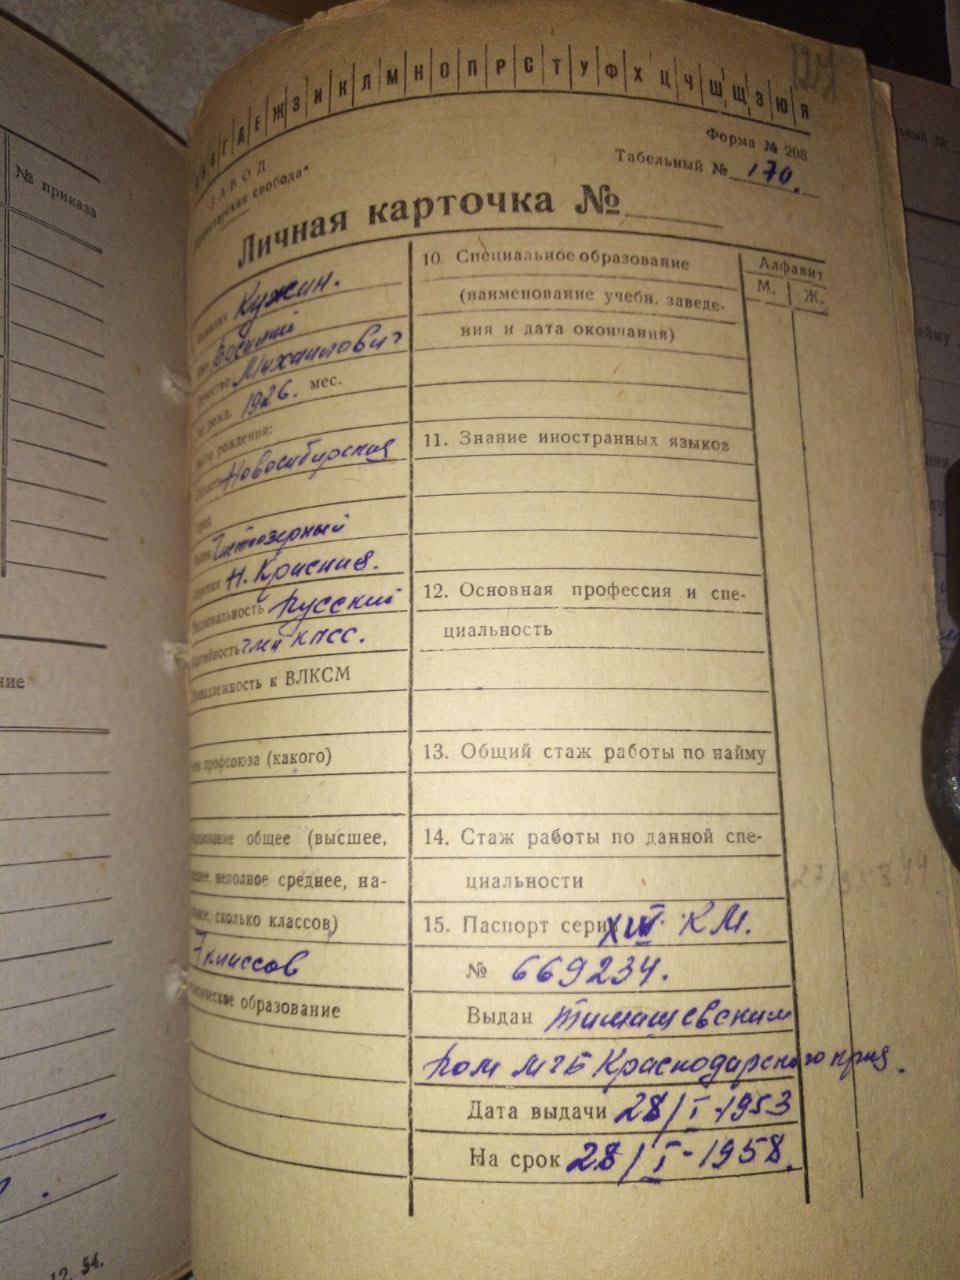 № приказа
ние
12. 54.
Б В Г Д Е Ж З И К Л М Н О П Р С Т У Ф Х Ц Ч Ш Щ Э Ю Я
124
Форма № 208
ЗАВОД
свобода"
Табельный № 170.
Личная карточка №
Фамилия Кужин.
Имя Василий
Отчество Михаилович
рожд. 1926. мес.
Место рождения:
Область Новосибирская
Город
Район Чистоозерный
Деревня Н. Красния.
Национальность Русский
Партийность член кпсс.
Принадлежность к ВЛКСМ
профсоюза (какого)
Образование общее (высшее,
среднее, неполное среднее, на-
сколько классов)
7 классов
образование
10 Специальное образование
(наименование учебн. заведе-
ния и дата окончания)
11. Знание иностранных языков
12. Основная профессия и спе-
циальность
13. Общий стаж работы по найму
14. Стаж работы по данной спе-
циальности
15. Паспорт серия КМ.
№ 669234.
Выдан Тимашевским
Ром МГБ Краснодарского края.
Дата выдачи 28/I-1953
На срок 28/I-1958.
Алфавит
М. Ж.